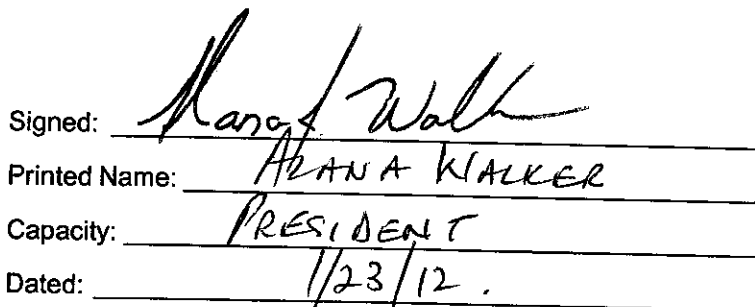 Signed: Alana J Walker
Printed Name: ALANA WALKER
Capacity: PRESIDENT
Dated: 1/23/12.